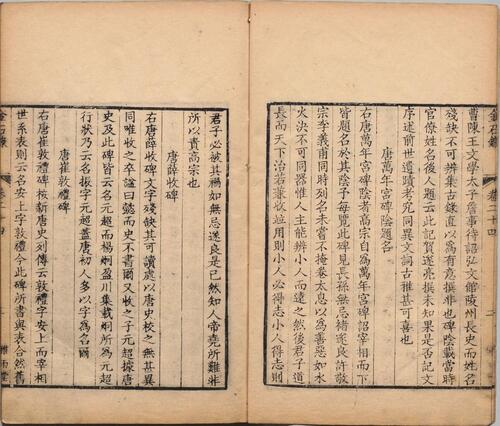 曹陳王文學太子詹事待詔弘文館陵州長史而姓名
殘缺不可辨集古錄直以為有意撰非也碑陰載當時
官僚姓名後人題云此記賀遂亮撰未知果是否記文
序述前世遺蹟考究同異文詞古雅甚可喜也
唐萬年宮碑陰題名
右唐萬年宮碑陰考高宗自為萬年宮碑詔宰相而下
皆題名於其陰予每覽此碑見長孫無忌褚遂良許敬
宗李義甫同時列名未嘗不掩卷太息以為善惡如水
火決不可同器惟人主能辨小人而遠之然後君子道
長而天下治若兼收並用則小人必得志小人得志則
金石錄
卷二十四
二
雅雨堂
君子必被其禍如無忌遂良是已然知人帝堯所難非
所以責高宗也
唐薛收碑
右唐薛收碑文字殘缺其可讀處以唐史校之無甚異
同唯收之卒謚曰懿而史不書爾又收之子元超據唐
史及此碑皆云名元超而楊炯盈川集載炯所為元超
行狀乃云名振字元超蓋唐初人多以字為名爾
唐崔敦禮碑
右唐崔敦禮碑按新唐史列傳云敦禮字安上而宰相
世系表則云名安上字敦禮今此碑所書與表合然舊